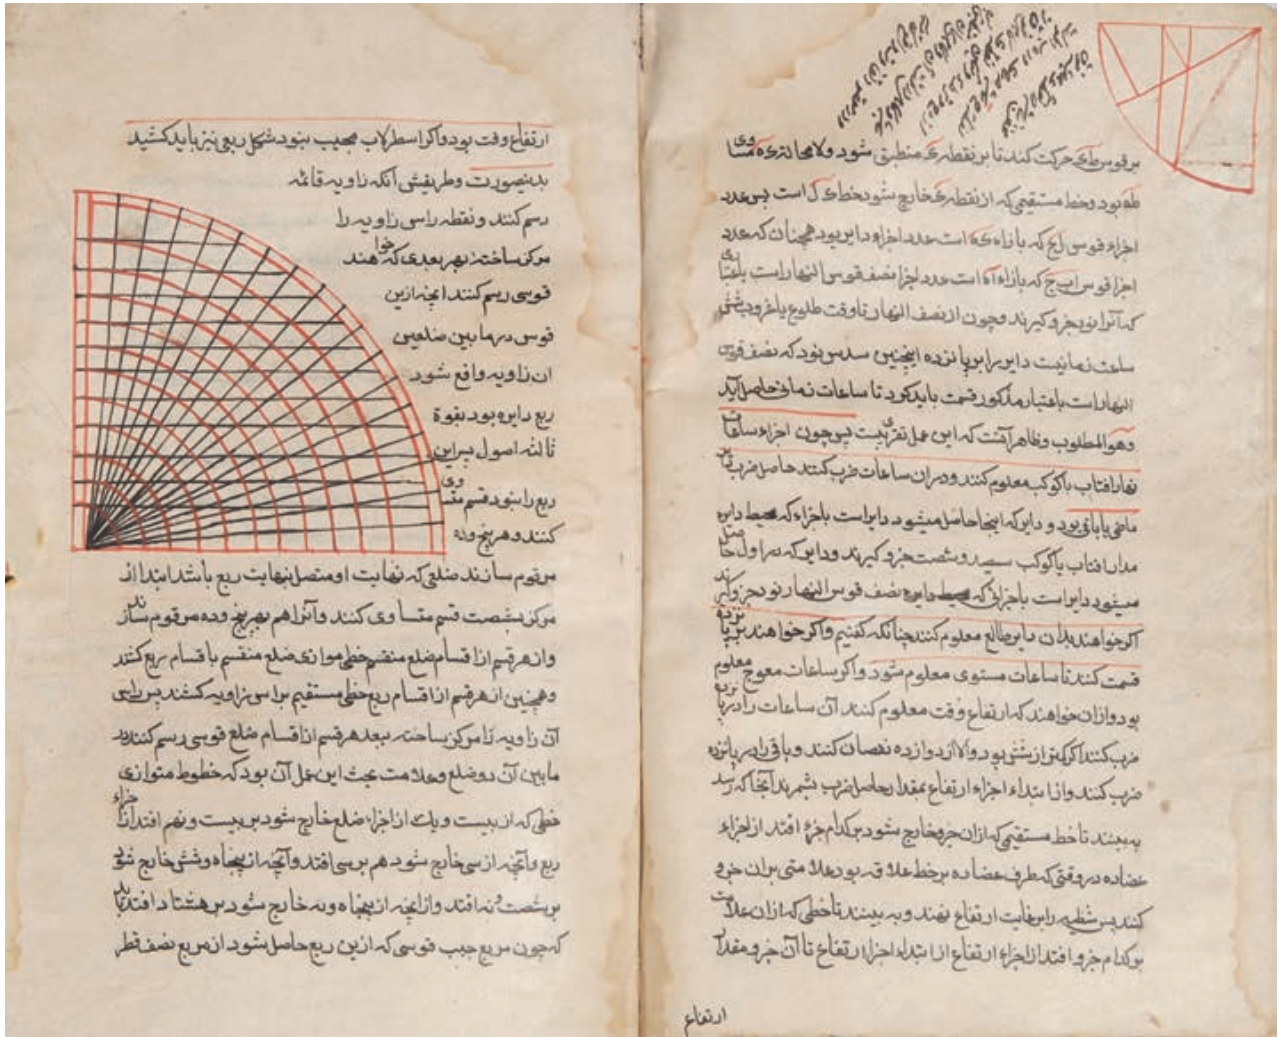 بر قوس طی حرکت کند تا بر نقطه ی منطبق شود ولا محاله ی ه مساوی
طه بود و خط مستقیمی که از نقطه ی خارج شود خط ی ل است پس عدد
اجزاء قوس لج که بازاء ی ه است عدد اجزاء دایر بود همچنان که عدد
اجزا قوس اب ج که بازاء اه است عدد اجزا نصف قوس النهار است باعتباری
که آنرا نود جزو گیرند و چون از نصف النهار تا وقت طلوع یا غروب شش
ساعت زمانیست دایر را بر پانزده اینچنین سدس نود که نصف قوس
النهار است باعتبار مذکور قسمت باید کرد تا ساعات زمانی حاصل آید
وهو المطلوب و ظاهر آنست که این عمل تقریبیست پس چون اجزاء ساعات
نهار افتاب یا کوکب معلوم کنند و در ان ساعات ضرب کنند حاصل ضرب دایر
ماضی یا باقی بود و دایر که اینجا حاصل میشود دایر است باجزاء که محیط دایره
مدار افتاب یا کوکب سیصد و شصت جزو گیرند و دایر که در اول حاصل
میشود دایر است باجزائی که نصف قوس النهار نود جزو گیرند
اگر خواهند بدان دایر طالع معلوم کنند چنانکه گفتیم و اگر خواهند بر پانزده
قسمت کنند تا ساعات مستوی معلوم شود و اگر ساعات معوج معلوم
بود و از ان خواهند که ارتفاع وقت معلوم کنند آن ساعات را در پانزده
ضرب کنند اگر کمتر از شش بود والا از دوازده نقصان کنند و باقی را در پانزده
ضرب کنند و از ابتداء اجزاء ارتفاع بمقدار حاصل ضرب بشمرند آنجا که رسد
به بینند تا خط مستقیمی که از ان جزو خارج شود بر کدام جزء افتد از اجزاء
عضاده در وقتی که طرف عضاده بر خط علاقه بود علامتی بران جزو
کنند پس شظیه را بر غایت ارتفاع نهند و به بینند تا خطی که از ان علامت
بر کدام جزو افتد از اجزاء ارتفاع از ابتداء اجزا ارتفاع تا آن جزو مقدار
ارتفاع
ارتفاع وقت بود و اگر اسطرلاب مجیب نبود شکل ربعی نیز باید کشید
بدینصورت و طریقش آنکه زاویه قائمه
رسم کنند و نقطه راس زاویه را
مرکز ساخته بهر بعدی که خواهند
قوسی رسم کنند انچه ازین
قوس در مابین ضلعین
ان زاویه واقع شود
ربع دایره بود بقوة
ثالثه اصول پس این
ربع را بنود قسم متساوی
کنند و هر پنج و ده
مرقوم سازند ضلعی که نهایت او متصل بنهایت ربع باشد ابتدا از
مرکز بشصت قسم متساوی کنند و آنرا هم بهر پنج و ده مرقوم سازند
و از هر قسم از اقسام ضلع منقسم خطی موازی ضلع منقسم باقسام ربع کنند
و همچنین از هر قسم از اقسام ربع خطی مستقیم براس زاویه کشند پس راس
آن زاویه را مرکز ساخته ببعد هر قسم از اقسام ضلع قوسی رسم کنند در
مابین آن دو ضلع و علامت صحت این عمل آن بود که خطوط متوازی
خطی که از بیست و یک از اجزاء ضلع خارج شود بر بیست و نهم افتد از اجزاء
ربع و آنچه از سی خارج شود هم بر سی افتد و آنچه از پنجاه و شش خارج شود
بر شصت و نه افتد و از انچه از پنجاه و نه خارج شود بر هشتاد افتد
که چون مربع جیب قوسی که ازین ربع حاصل شود از مربع نصف قطر